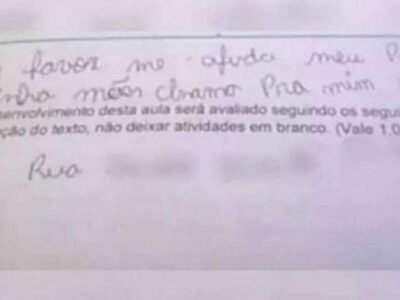 favor me ajuda meu P
inha mães chramo Pra mim
senvolvimento desta aula será avaliado seguindo os segui
ção do texto, não deixar atividades em branco. (Vale 1.0
Rua